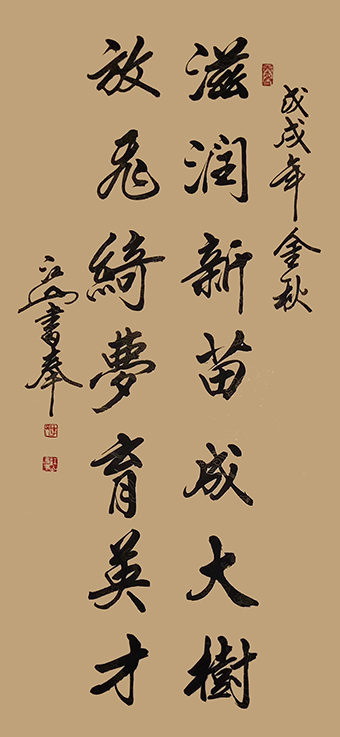 戊戌年金秋
滋润新苗成大樹
放飞綺夢育英才
江山書奉